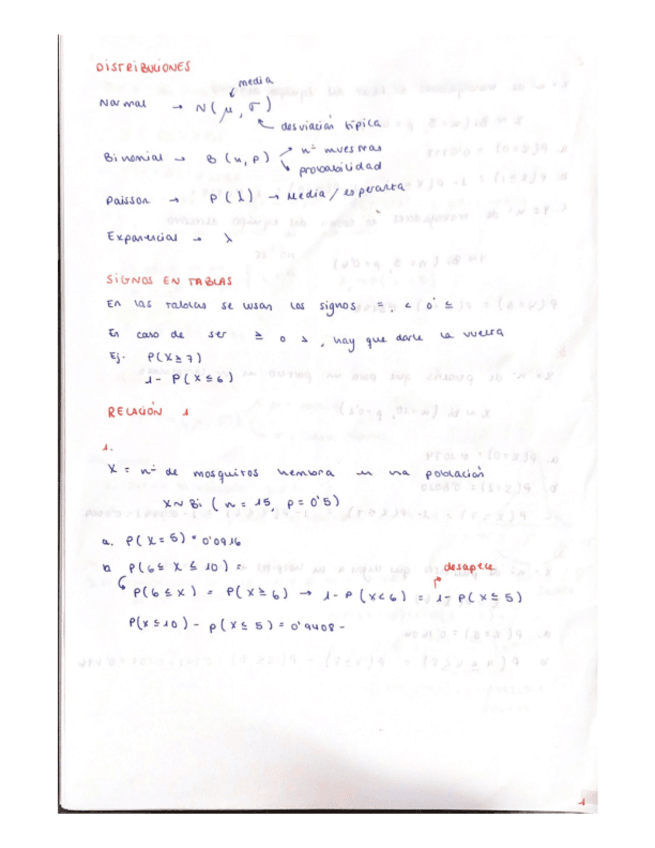 DISTRIBUCIONES
media
Normal → N(μ, σ)
desviación típica
Binomial → B (n, p)
nº muestras
probabilidad
Poisson → P(λ) → Media/esperanza
Exponencial → λ
SIGNOS EN TABLAS
En las tablas se usan los signos =, < o ≤
En caso de ser ≥ o >, hay que darle la vuelta
Ej. P(X≥7)
1- P(X≤6)
RELACIÓN 1
1.
X = nº de mosquitos hembra en una población
X∼Bi (n = 15, p = 0'5)
a. P(X=5) = 0'0916
b P(6≤ X ≤ 10) =
desaparece
P(6≤X) = P(X≥6) → 1-P(X<6) = 1-P(X≤5)
P(X≤10) - P(X≤5) = 0'9408-
1